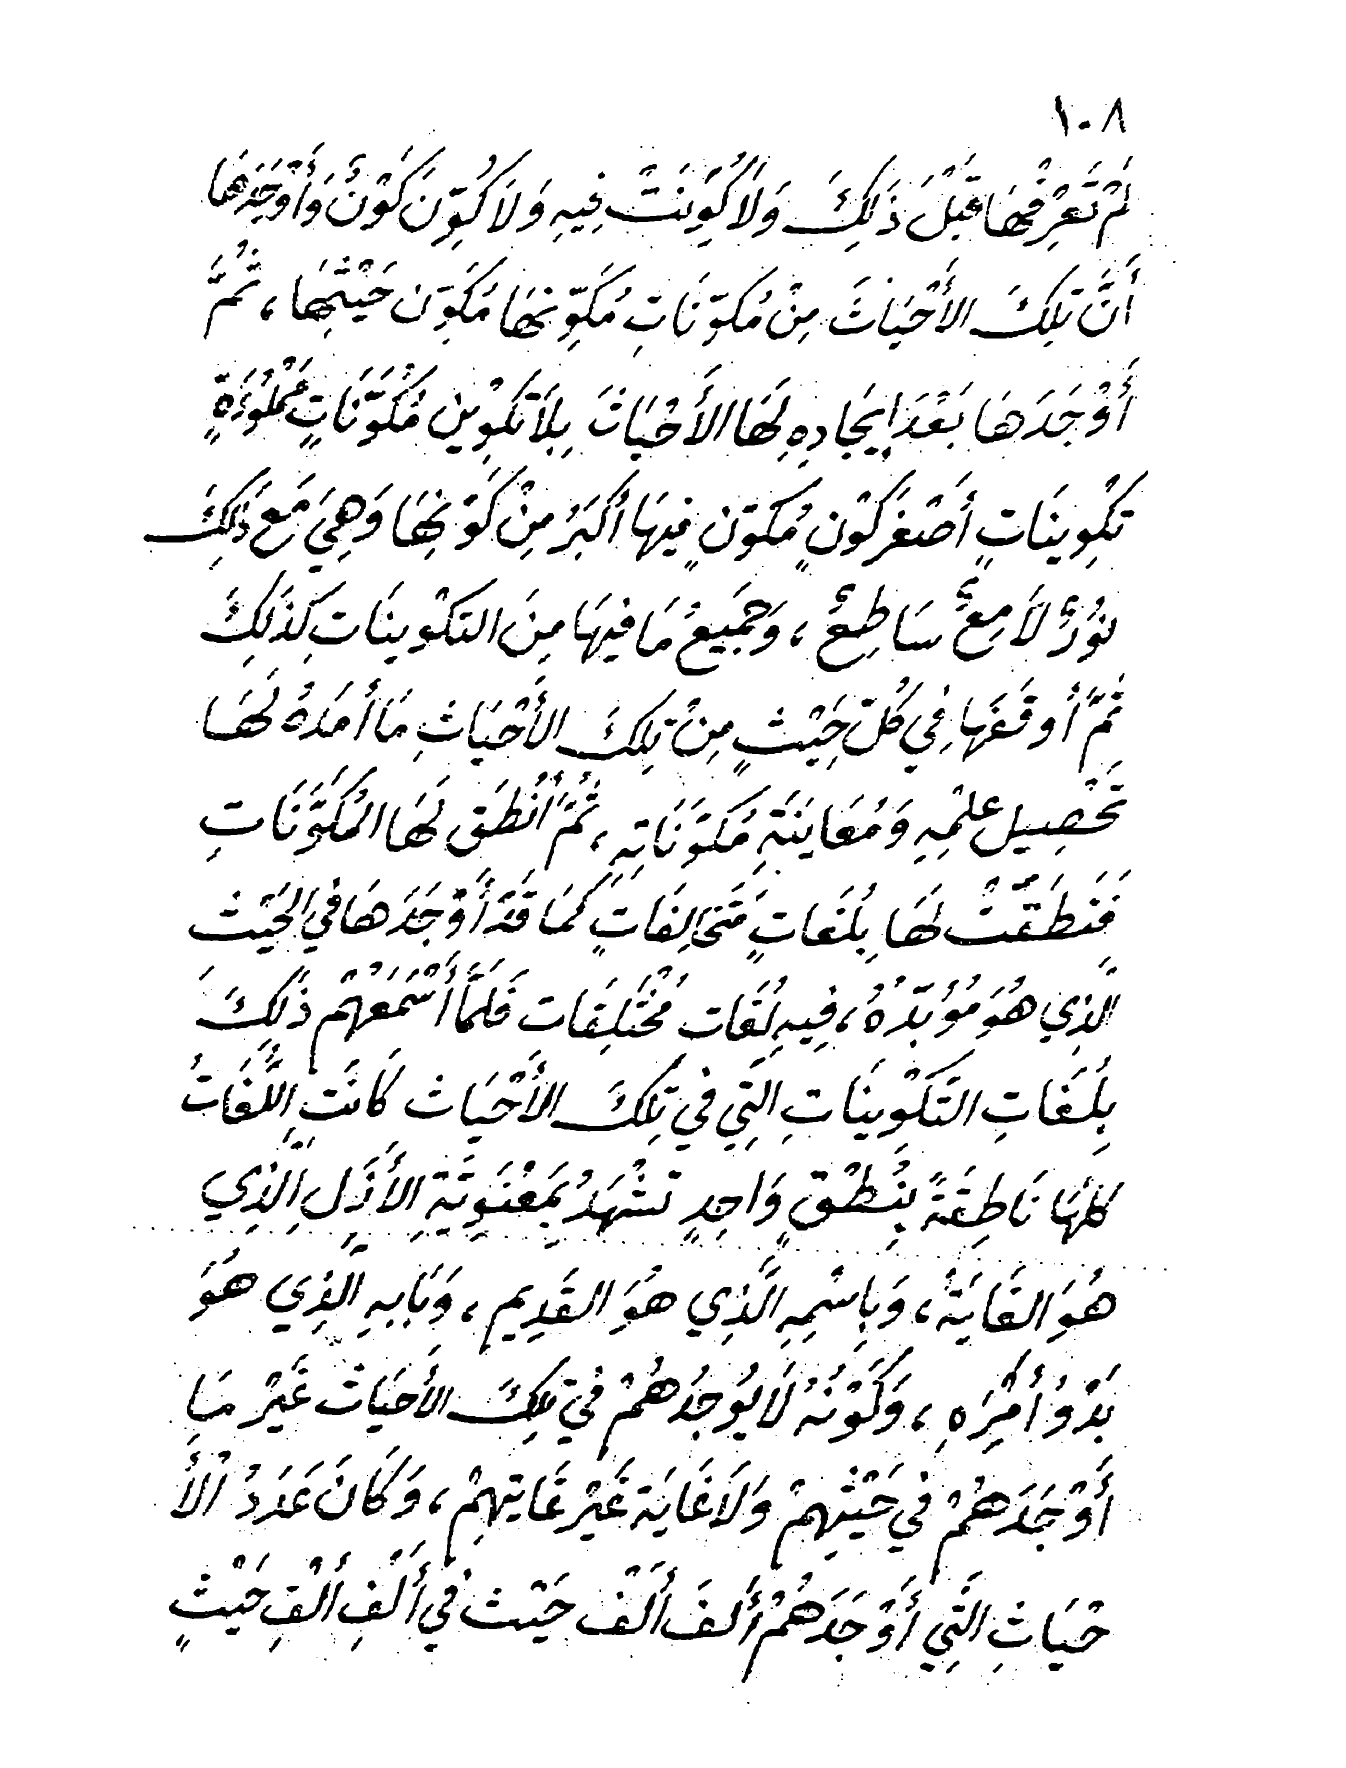 ١٠٨
لَمْ تَعْرِفْهَا قَبْلَ ذَلِكَ وَلَا كُوِّنَتْ فِيهِ وَلَا كُوِّنَ كَوْنٌ وَأَوْجَدَهَا
أَنَّ تِلْكَ الأَحْيَاثَ مِنْ مُكَوِّنَاتِ مُكَوِّنِهَا مُكَوِّن حَيْثِهَا ، ثُمَّ
أَوْجَدَهَا بَعْدَ إِيجَادِهِ لَهَا الأَحْيَاثَ بِلاَ تَكْوِين مُكَوَّنَاتٍ مَمْلُوءَةٍ
تَكْوِينَاتٍ أَصْغَر كَوْنٍ مُكَوّنٍ فِيهَا أَكْبَرُ مِنْ كَوْنِهَا وَهِيَ مَعَ ذَلِكَ
نُورٌ لَامِعٌ سَاطِعٌ ، وَجَمِيعُ مَا فِيهَا مِنَ التَكْوِينَاتِ كَذَلِكَ
ثُمَّ أَوقَفَهَا فِي كُلِّ حَيْثٍ مِنْ تِلْكَ الأَحْيَاثِ مَا أَمَدَّهُ لَهَا
تَحْصِيل عِلْمِهِ وَمُعَايَنَةِ مُكَوّنَاتِهِ ، ثُمَّ أَنْطَقَ لَهَا المُكَوَّنَاتِ
فَنَطَقَتْ لَهَا بِلُغَاتٍ مُتَخَالِفَاتٍ كَمَا قَدْ أَوْجَدَهَا فِي الحَيْثِ
الَّذِي هُوَ مُؤَبِّدُهُ ، فِيهِ لُغَات مُخْتَلِفَات فَلَمَّا أَسْمَعَهُمْ ذَلِكَ
بِلُغَاتِ التَّكْوِينَاتِ الَّتِي فِي تِلْكَ الأَحْيَاث كَانَتِ اللُّغَاتُ
كُلُّهَا نَاطِقَةً بِنُطْقٍ وَاحِدٍ تَشْهَدُ بِمَعْنَوِيَّةِ الأَزَلِ الَّذِي
هُوَ الغَايَةُ ، وَبِاسْمِهِ الَّذِي هُوَ القَدِيم ، وَبَابِهِ الَّذِي هُوَ
بَدْوُ أَمْرِهِ ، وَكَوْنُهُ لَا يُوجِدُهُمْ فِي تِلْكَ الأَحيَاثْ غَيْر مَا
أَوْجَدَهُمْ فِي حَيْثِهِمْ وَلَا غَايَة غَيْر غَايَتِهِمْ ، وَكَانَ عَدَدُ الأَ
حْيَاثِ الَّتِي أَوْجَدَهُمْ أَلفَ أَلْف حَيْث فِي أَلْفِ أَلْفِ حَيْثٍ